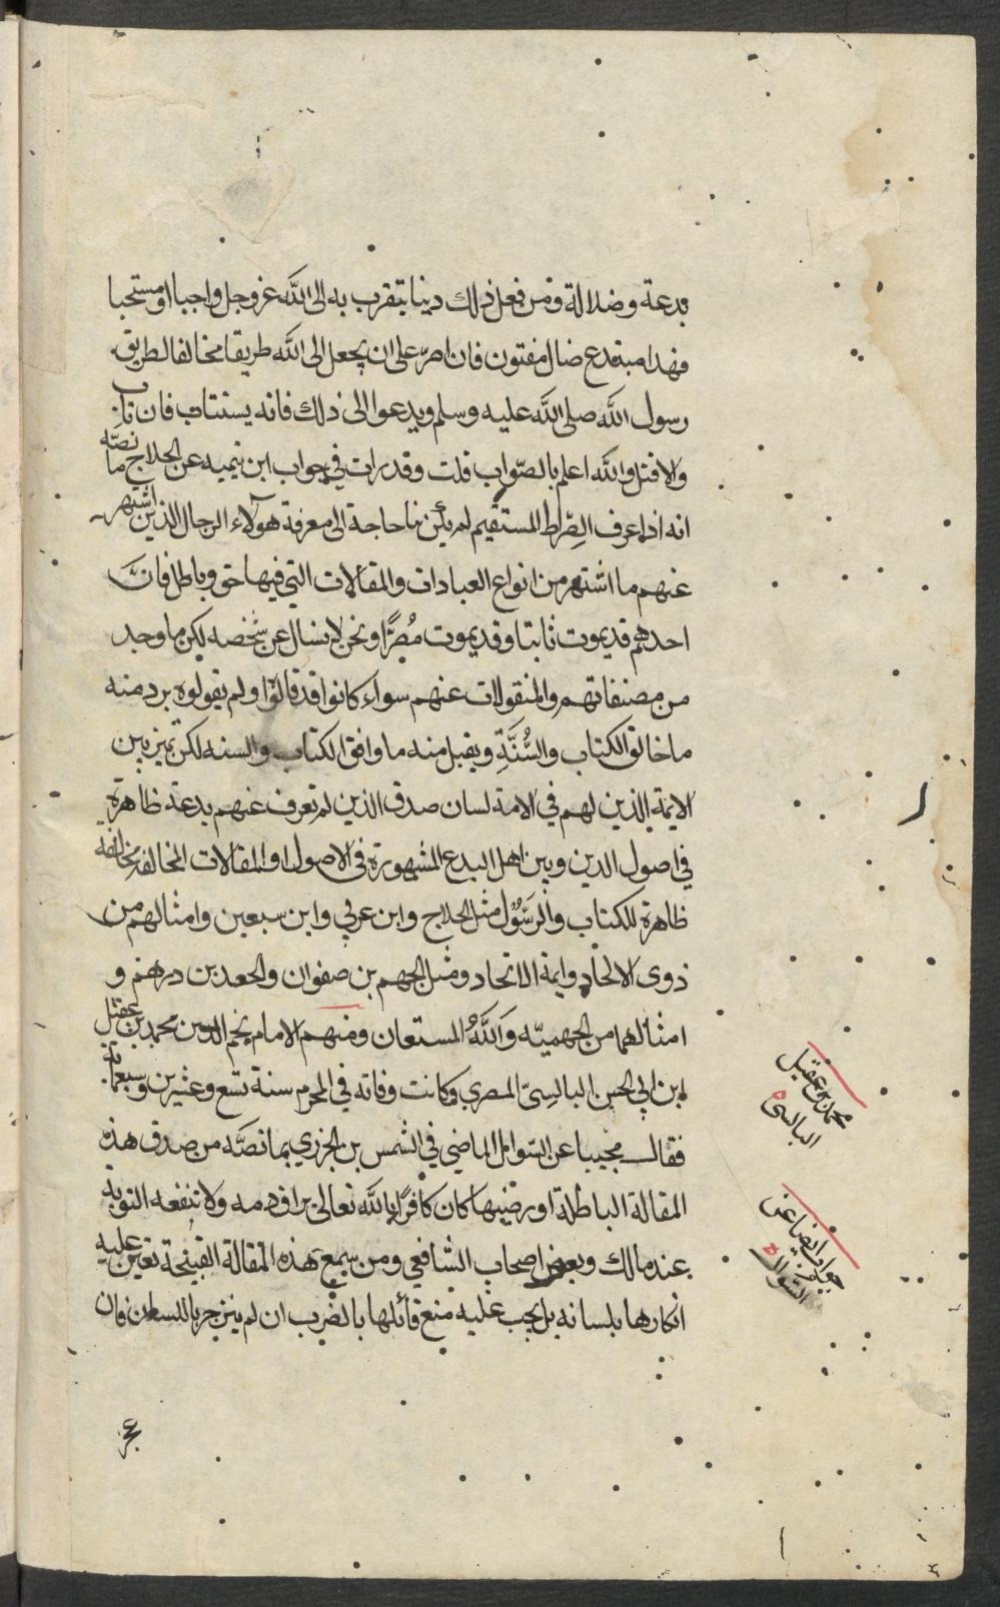 بدعة وضلالة ومن فعل ذلك دينا يتقرب به الى الله عز وجل واجبا او مستحبا
فهذا مبتدع ضال مفتون فان اصر على ان يجعل الى الله طريقا مخالفا لطريق
رسول الله صلى الله عليه وسلم ويدعوا الى ذلك فانه يستتاب فان تاب
والا قتل والله اعلم بالصواب قلت وقد رات في جواب ابن تيميه عن الحلاج ما نصه
انه اذا عرف الصراط المستقيم لم يكن بنا حاجة الى معرفة هولاء الرجال الذين اشتهر
عنهم ما اشتهر من انواع العبادات والمقالات التي فيها حق وباطل فان
احدهم قد يموت تائبا وقد يموت مُصِرًّا ونحن لا نسال عن شخصه لكن ما وجد
من مصنفاتهم والمنقولات عنهم سواء كانوا قد قالوا او لم يقولوه يرد منه
ما خالف الكتاب والسُّنَّةِ ويقبل منه ما وافق الكتاب والسنه لكن نميز بين
الايمة الذين لهم في الامة لسان صدق الذين لم تعرف عنهم بدعة ظاهرة
في اصول الدين وبين اهل البدع المشهورة في الاصول او المقالات المخالفة مخالفة
ظاهرة للكتاب والرَّسُول مثل الحلاج وابن عربي وابن سبعين وامثالهم من
ذوى الالحاد وايمة الاتحاد ومثل الجهم بن صفوان والجعد بن درهم و
امثالهما من الجهميّه وَاللَّهُ المستعان ومنهم الامام نجم الدين محمد بن عقيل
ابن ابي الحسن البالسِيّ المصري وكانت وفاته في المحرم سنة تسع وعشرين وسبعماية
فقال مجيبا عن السّوال الماضي في الشمس بن الجزري بما نصَّه من صدق هذه
المقالة الباطلة او رضيها كان كافرًا بالله تعالى يراق دمه ولا تنفعه التوبة
عند مالك وبعض اصحاب الشافعي ومن سمع هذه المقالة القبيحة تعين عليه
انكارها بلسانه بل يجب عليه منع قائلها بالضرب ان لم ينزجر باللسان فان
محمد بن عقيل
البالسى
جواب ايضا عن
السوال